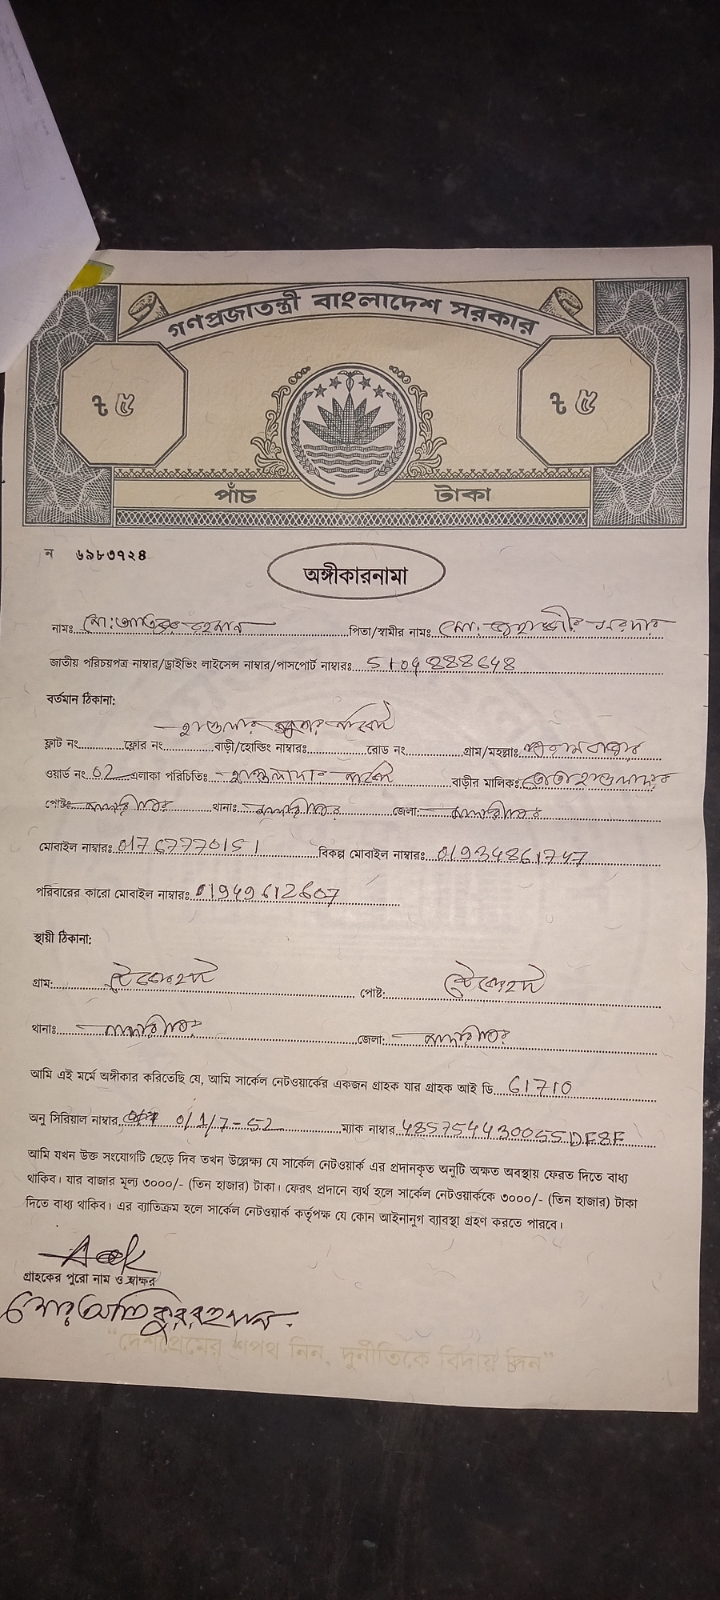 গণপ্রজাতন্ত্রী বাংলাদেশ সরকার
৳ ৫ ৳ ৫
পাঁচ টাকা
ন ৬৯৮৩৭২৪
অঙ্গীকারনামা
নামঃ মো: আতিকুর রহমান পিতা/স্বামীর নামঃ মো:
জাতীয় পরিচয়পত্র নাম্বার/ড্রাইভিং লাইসেন্স নাম্বার/পাসপোর্ট নাম্বারঃ 5104888648
বর্তমান ঠিকানা:
ফ্লাট নং ফ্লোর নং বাড়ী/হোল্ডিং নাম্বারঃ রোড নং গ্রাম/মহল্লাঃ
ওয়ার্ড নং 02 এলাকা পরিচিতিঃ বাড়ীর মালিকঃ
পোষ্টঃ মাদারীপুর থানাঃ মাদারীপুর জেলা: মাদারীপুর
মোবাইল নাম্বারঃ 01767770151 বিকল্প মোবাইল নাম্বারঃ 01934861747
পরিবারের কারো মোবাইল নাম্বারঃ 01949612607
স্থায়ী ঠিকানা:
গ্রাম: পোষ্ট:
থানাঃ মাদারীপুর জেলা: মাদারীপুর
আমি এই মর্মে অঙ্গীকার করিতেছি যে, আমি সার্কেল নেটওয়ার্কের একজন গ্রাহক যার গ্রাহক আই ডি 61710
অনু সিরিয়াল নাম্বার 0/1/7-52 ম্যাক নাম্বার 485754430055DF8F
আমি যখন উক্ত সংযোগটি ছেড়ে দিব তখন উল্লেক্ষ্য যে সার্কেল নেটওয়ার্ক এর প্রদানকৃত অনুটি অক্ষত অবস্থায় ফেরত দিতে বাধ্য
থাকিব। যার বাজার মূল্য ৩০০০/- (তিন হাজার) টাকা। ফেরৎ প্রদানে ব্যর্থ হলে সার্কেল নেটওয়ার্ককে ৩০০০/- (তিন হাজার) টাকা
দিতে বাধ্য থাকিব। এর ব্যতিক্রম হলে সার্কেল নেটওয়ার্ক কর্তৃপক্ষ যে কোন আইনানুগ ব্যাবস্থা গ্রহণ করতে পারবে।
গ্রাহকের পুরো নাম ও স্বাক্ষর
মোঃ আতিকুর রহমান
"দেশপ্রেমের শপথ নিন, দুর্নীতিকে বিদায় দিন"